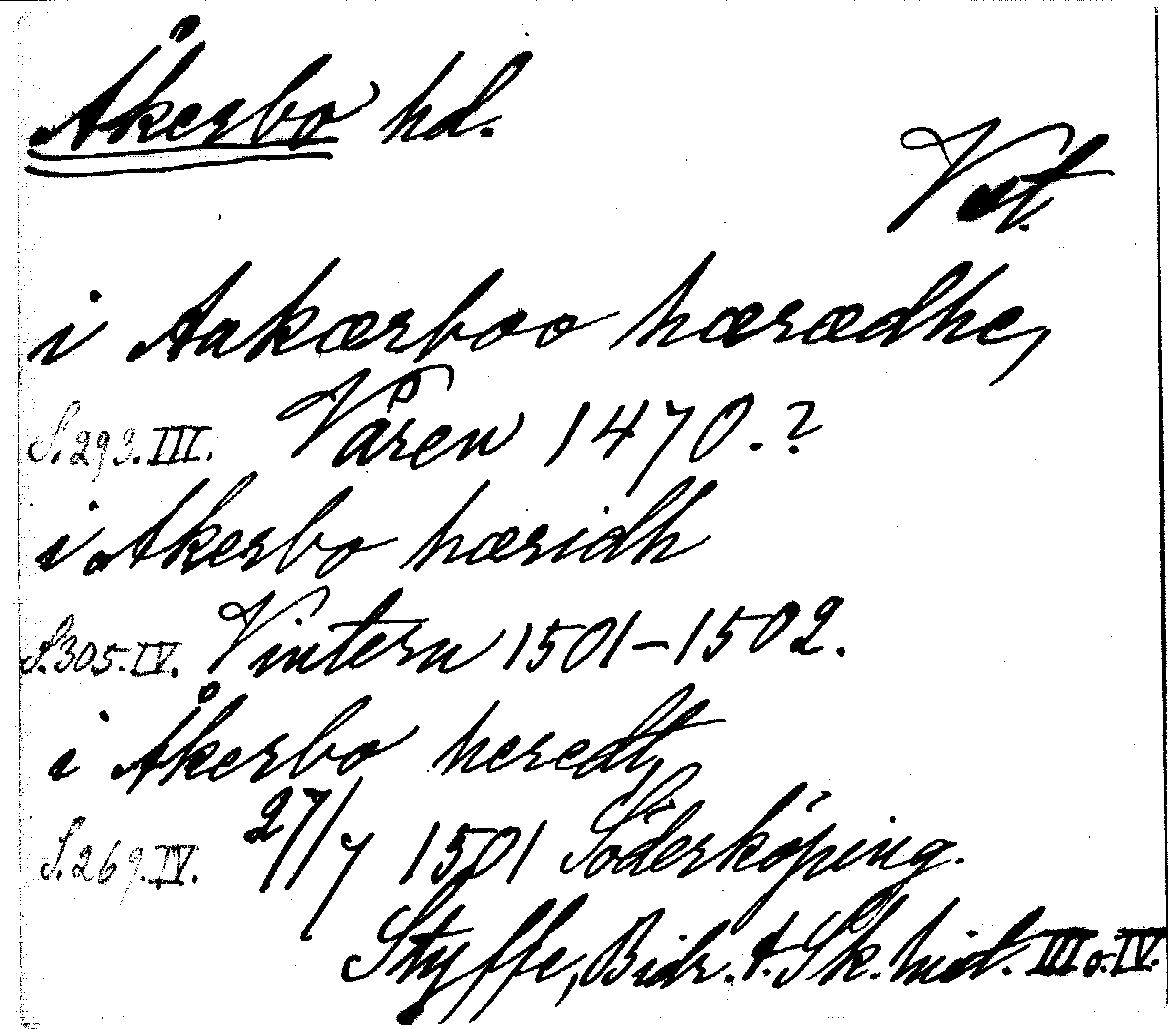 Åkerbo hd.
Vst.
i Aakærboo hærædhe,
S.293.III. Våren 1470.?
i Akerbo hæridh
S.305.IV. Vintern 1501-1502.
i Åkerbo heredt,
S.269.IV. 27/7 1501 Söderköping.
Styffe, Bidr. t. Sk. hist. III o. IV.